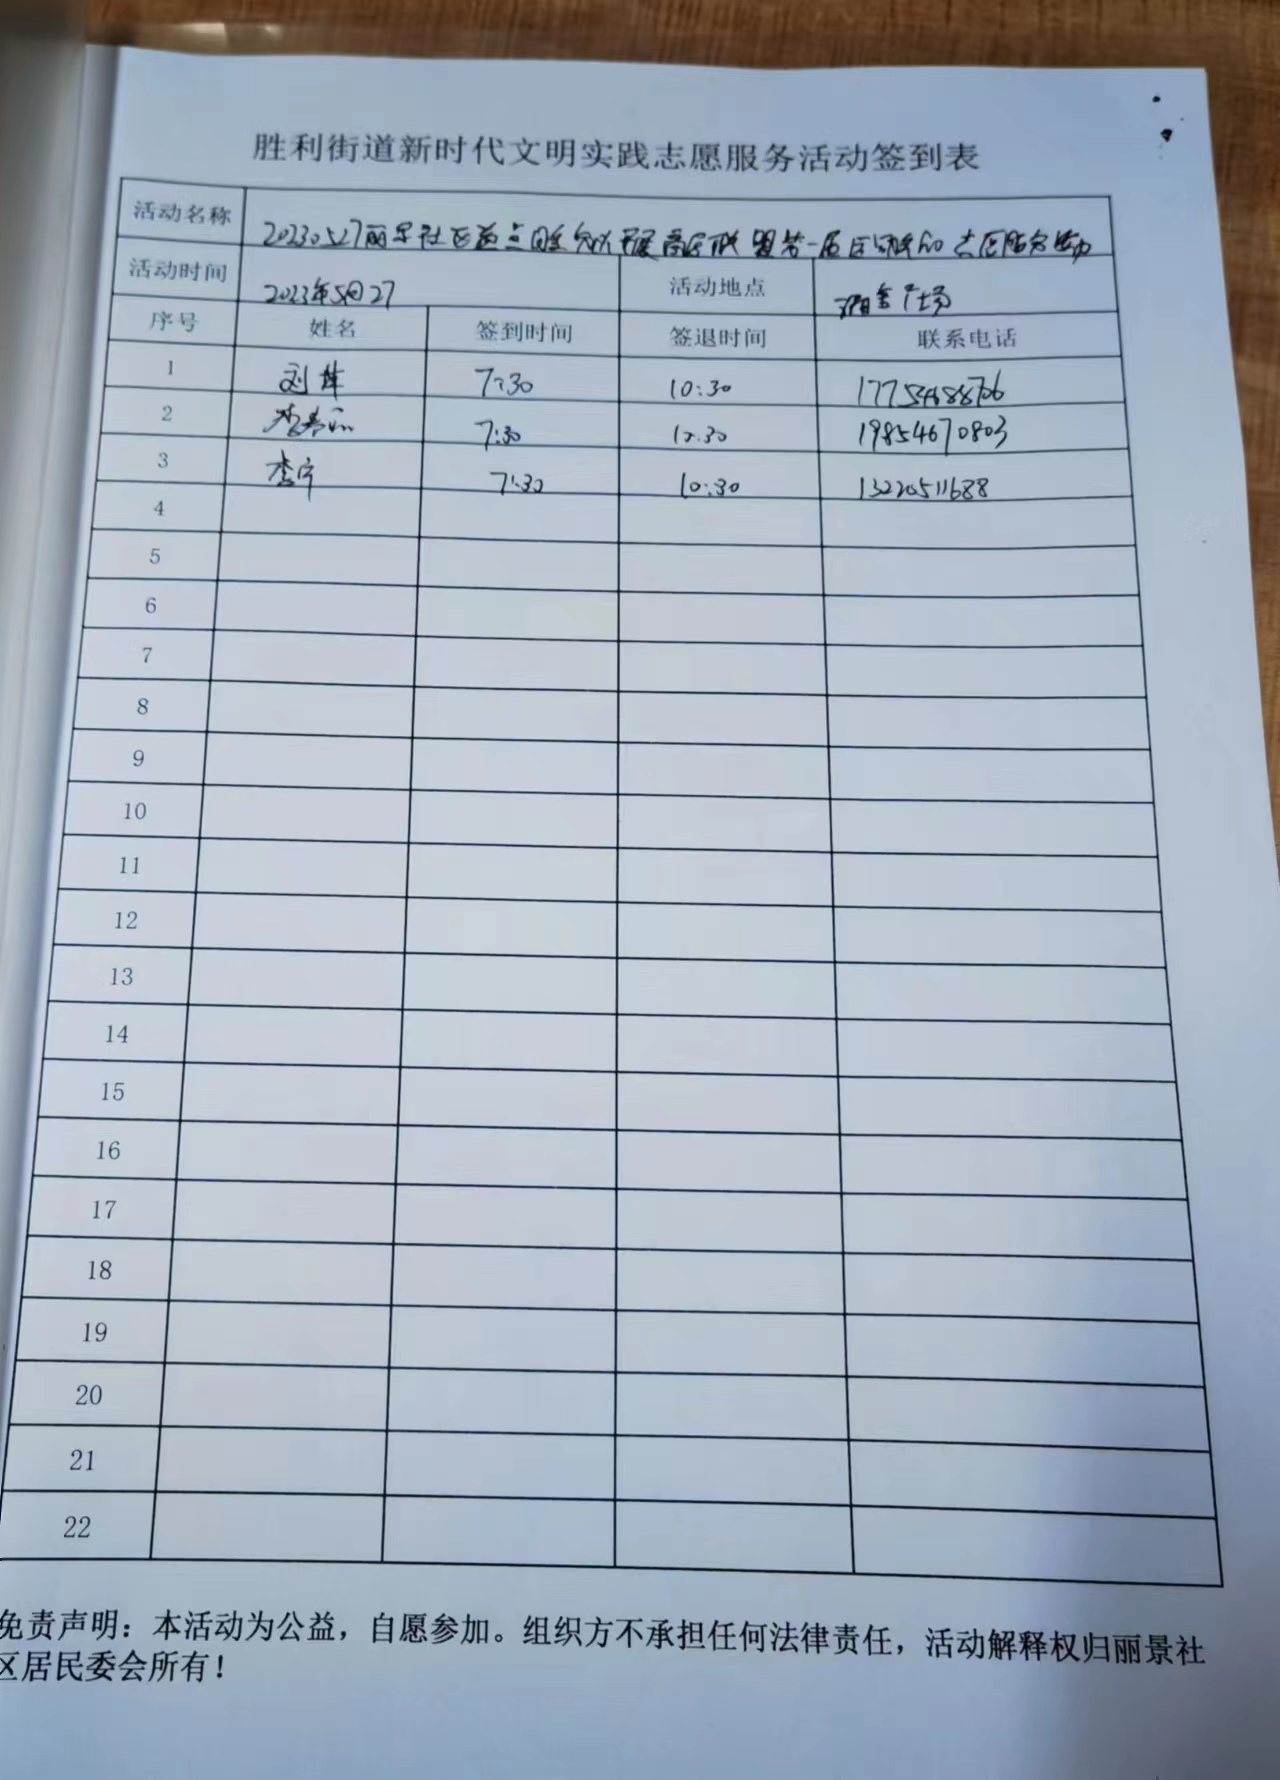 胜利街道新时代文明实践志愿服务活动签到表
活动名称 20230527丽景社区
活动时间 2023年5月27 活动地点 广场
序号 姓名 签到时间 签退时间 联系电话
1 刘 7:30 10:30 17754688706
2 李 7:30 10:30 19854670803
3 李宁 7:30 10:30 13220511688
4
5
6
7
8
9
10
11
12
13
14
15
16
17
18
19
20
21
22
免责声明：本活动为公益，自愿参加。组织方不承担任何法律责任，活动解释权归丽景社
区居民委会所有！